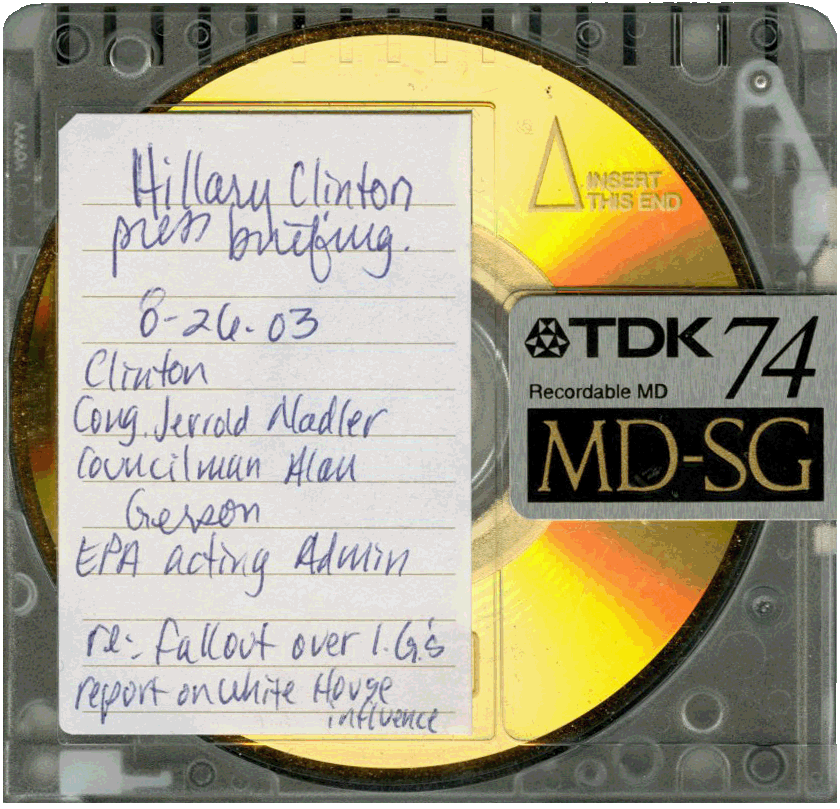 Hillary Clinton
press briefing.
8-26-03
Clinton
Cong. Jerrold Nadler
Councilman Alan
Gerson
EPA acting Admin
re: fallout over I.G.'s
report on White House
influence
INSERT
THIS END
TDK 74
Recordable MD
MD-SG